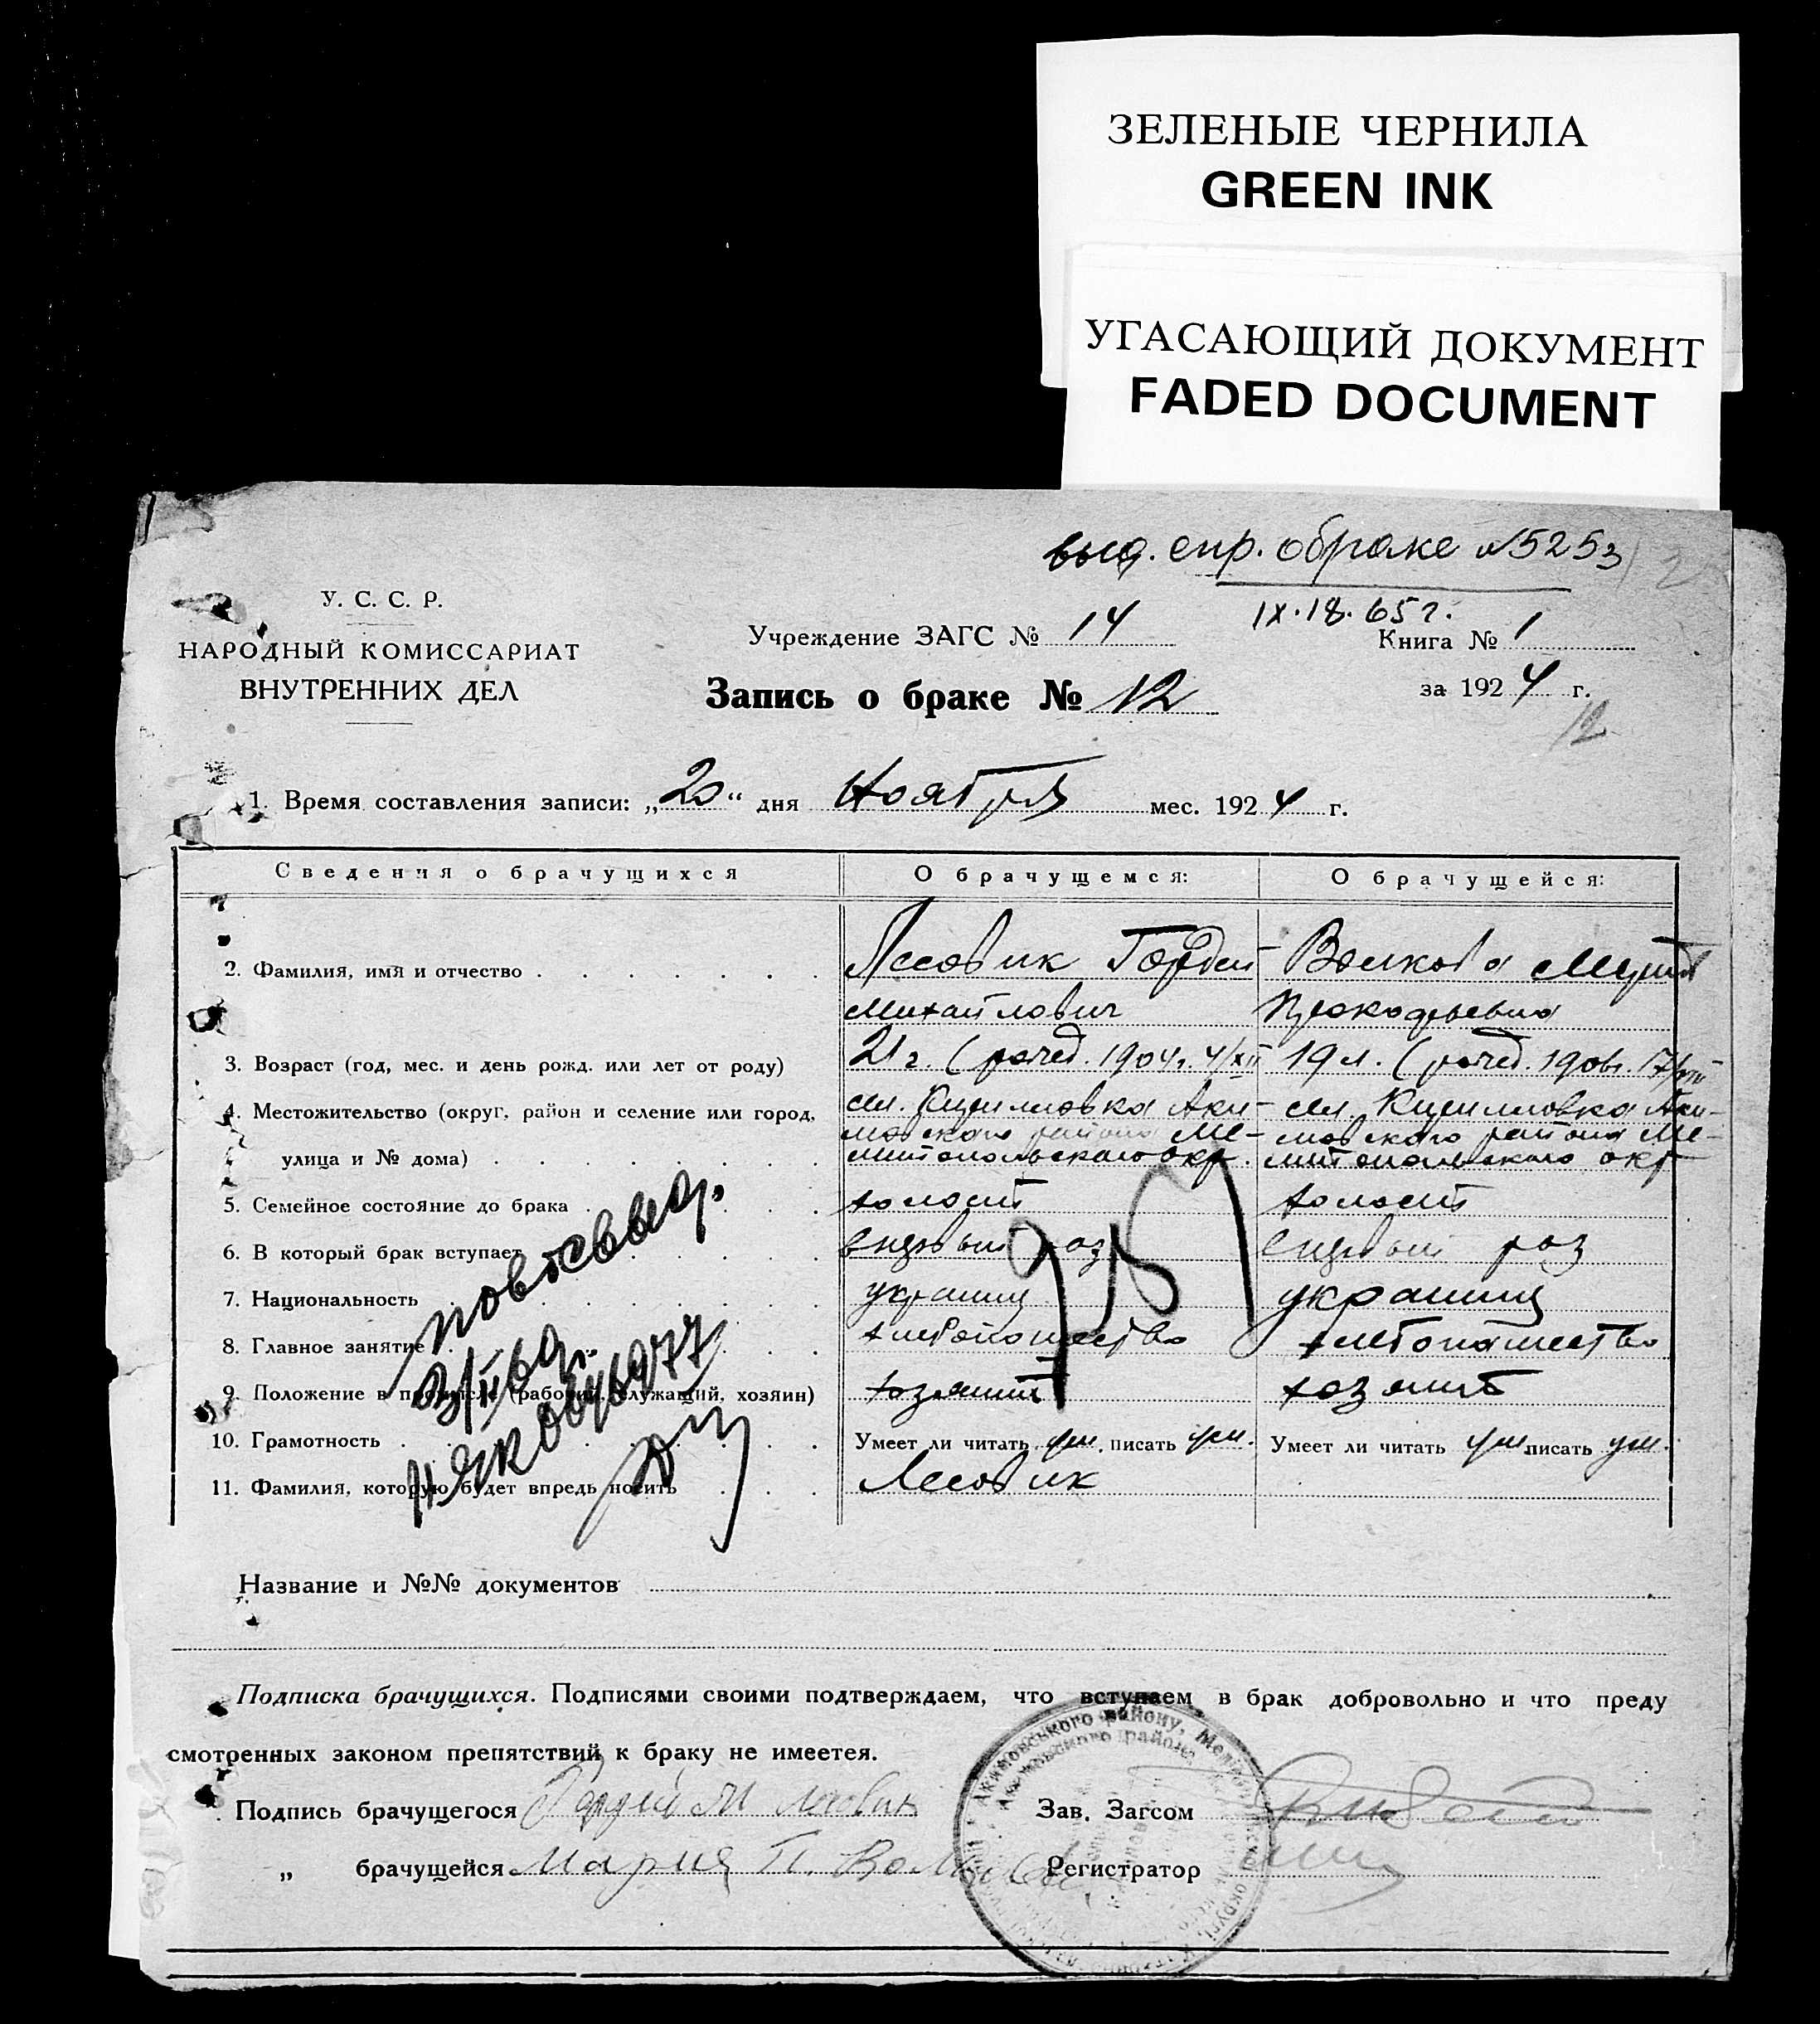 ЗЕЛЕНЫЕ ЧЕРНИЛА
GREEN INK
УГАСАЮЩИЙ ДОКУМЕНТ
FADED DOCUMENT
выд. спр. о браке №5253
IX.18.65 г.
У. С. С. Р.
НАРОДНЫЙ КОМИССАРИАТ
ВНУТРЕННИХ ДЕЛ
Учреждение ЗАГС № 14
Книга № 1
Запись о браке № 12
за 1924 г.
12
1. Время составления записи: „20“ дня Ноября мес. 1924 г.
Сведения о брачущихся О брачущемся: О брачущейся:
2. Фамилия, имя и отчество Лесовик Гордей Волкова Мария
Михайлович Прокофьевна
3. Возраст (год, мес. и день рожд. или лет от роду) 21 г. (рожд. 1904 г. 4/XII 19 л. (рожд. 1906 г. 17/VIII
4. Местожительство (округ, район и селение или город, сел. Кирилловка Аки- сел. Кирилловка Аки-
мовского района Ме- мовского района Ме-
улица и № дома) литопольского окр. литопольского окр
5. Семейное состояние до брака холост холост
6. В который брак вступает первый раз первый раз
7. Национальность украинц украинц
8. Главное занятие хлебопашество хлебопашество
9. Положение в промысле (рабочий, служащий, хозяин) хозяин хозяин
10. Грамотность Умеет ли читать ум. писать ум. Умеет ли читать ум. писать ум.
11. Фамилия, которую будет впредь носить Лесовик
повт свид.
Название и №№ документов
Подписка брачущихся. Подписями своими подтверждаем, что вступаем в брак добровольно и что преду
смотренных законом препятствий к браку не имеется.
Подпись брачущегося Гордей М Лесовик Зав. Загсом
„ брачущейся Мария П. Волкова Регистратор
Акимовського району, Меліт